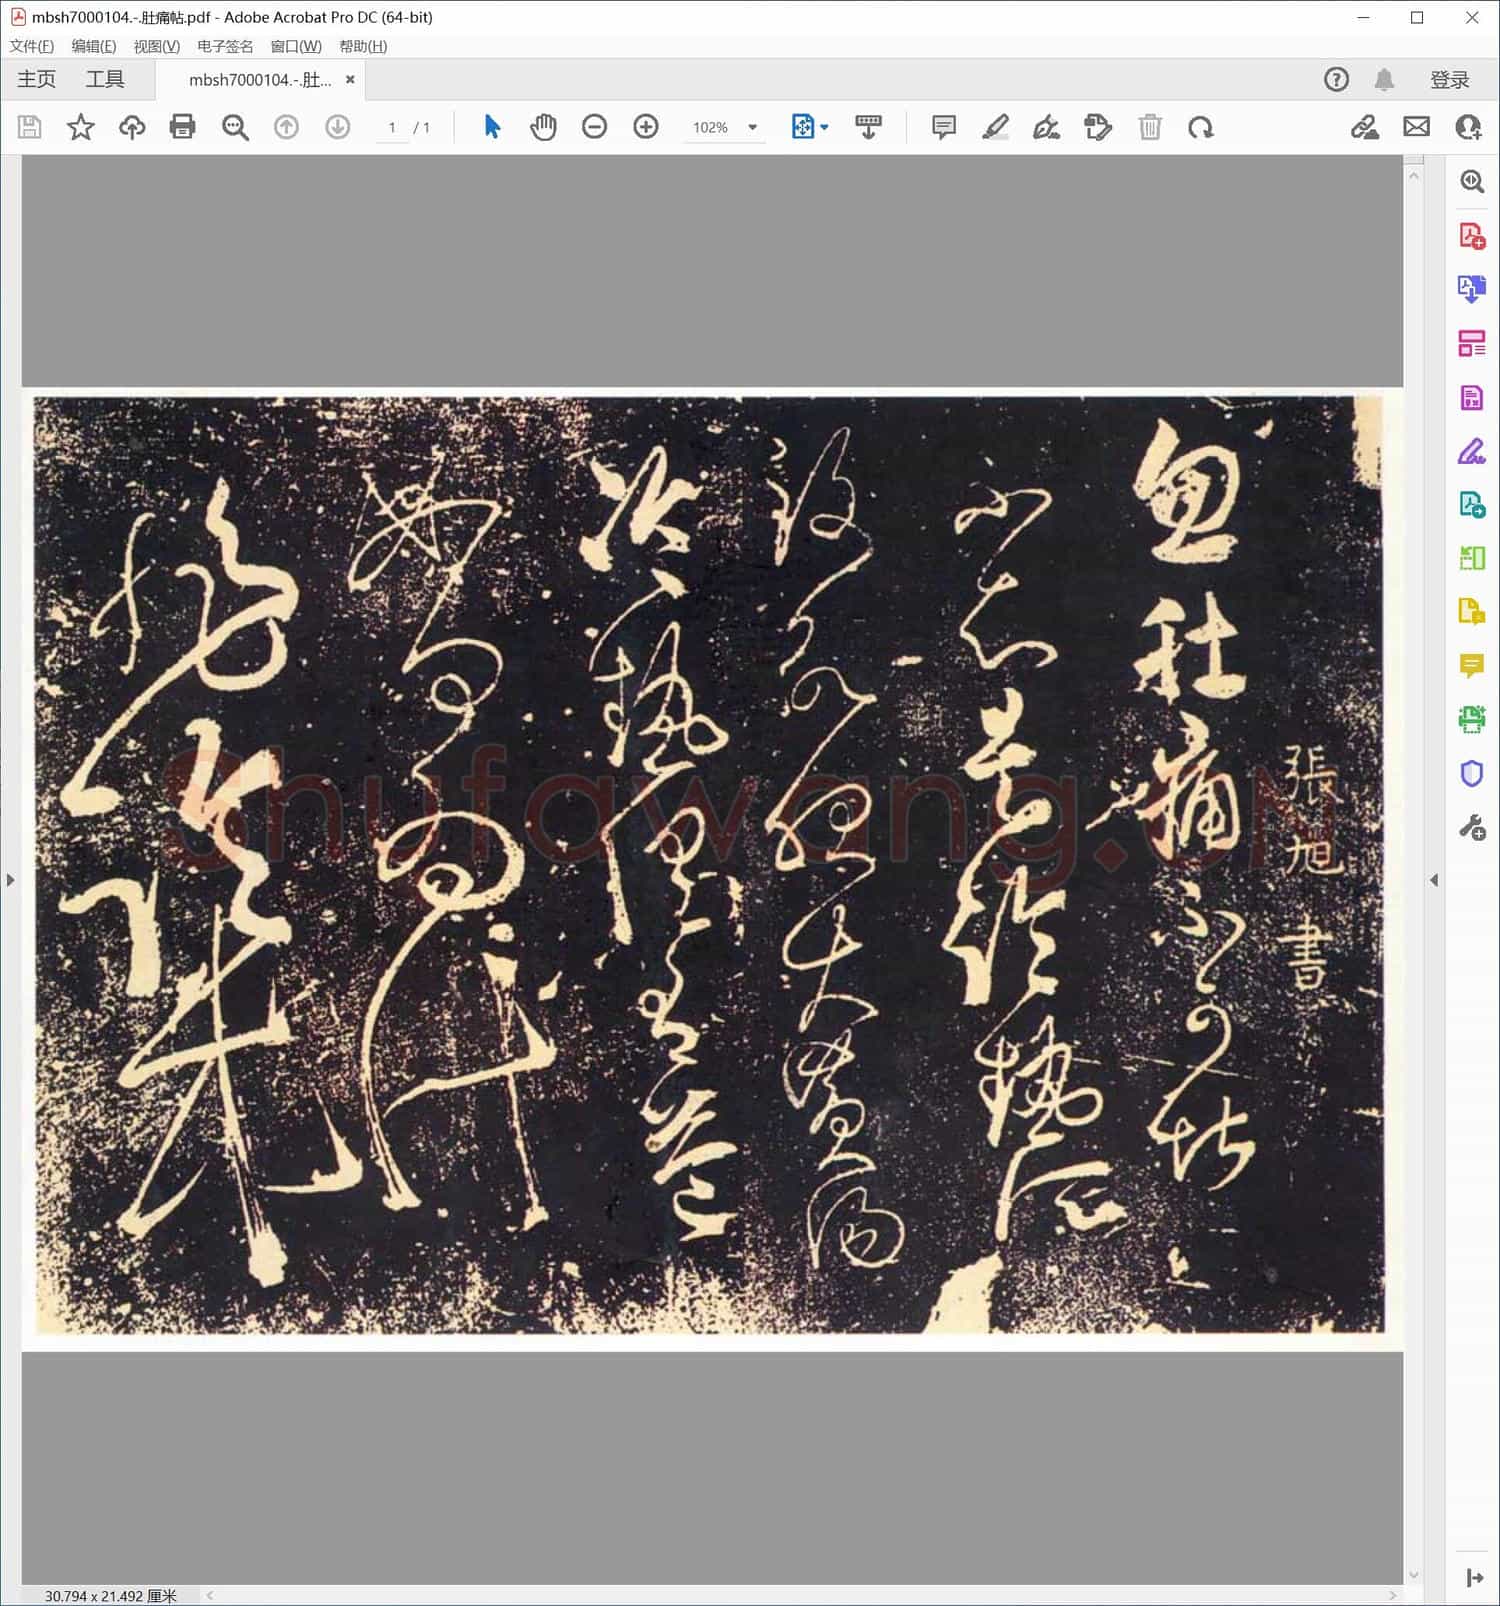 mbsh7000104.-.肚痛帖.pdf - Adobe Acrobat Pro DC (64-bit)
文件(F) 编辑(E) 视图(V) 电子签名 窗口(W) 帮助(H)
主页 工具 mbsh7000104.-.肚... 登录
1 / 1 102%
張旭書
忽肚痛不可堪
不知是冷熱所
致欲服大黃湯
冷熱俱有益
如何為計
Shufawang.CN
30.794 x 21.492 厘米